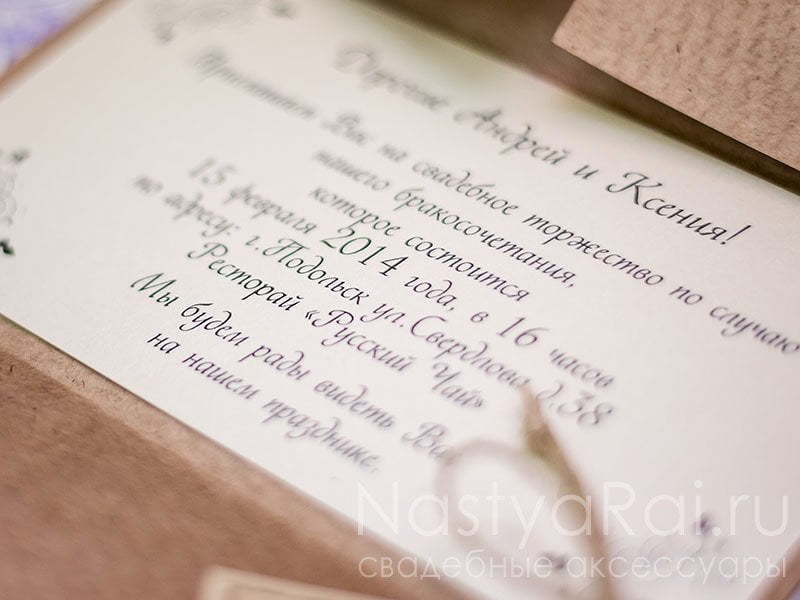 Дорогие Андрей и Ксения!
Приглашаем Вас на свадебное торжество по случаю
нашего бракосочетания,
которое состоится
15 февраля 2014 года, в 16 часов
по адресу: г. Подольск ул. Свердлова д.38
Ресторай «Русский Чай»
Мы будем рады видеть Вас
на нашем празднике.
NastyaRai.ru
свадебные аксессуары